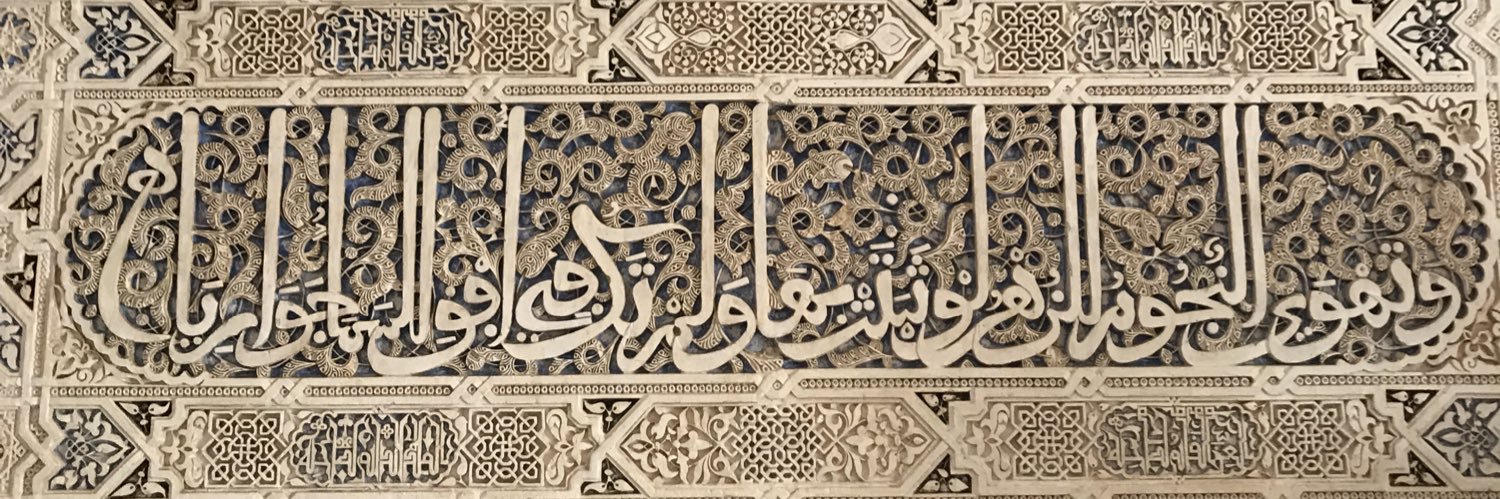 وَتَهْوَى النُّجُومُ الزُّهْرُ لَوْ ثَبَتَتْ بِهَا وَلَمْ تَكُ فِي أُفْقِ السَّمَاءِ جَوَارِيَا